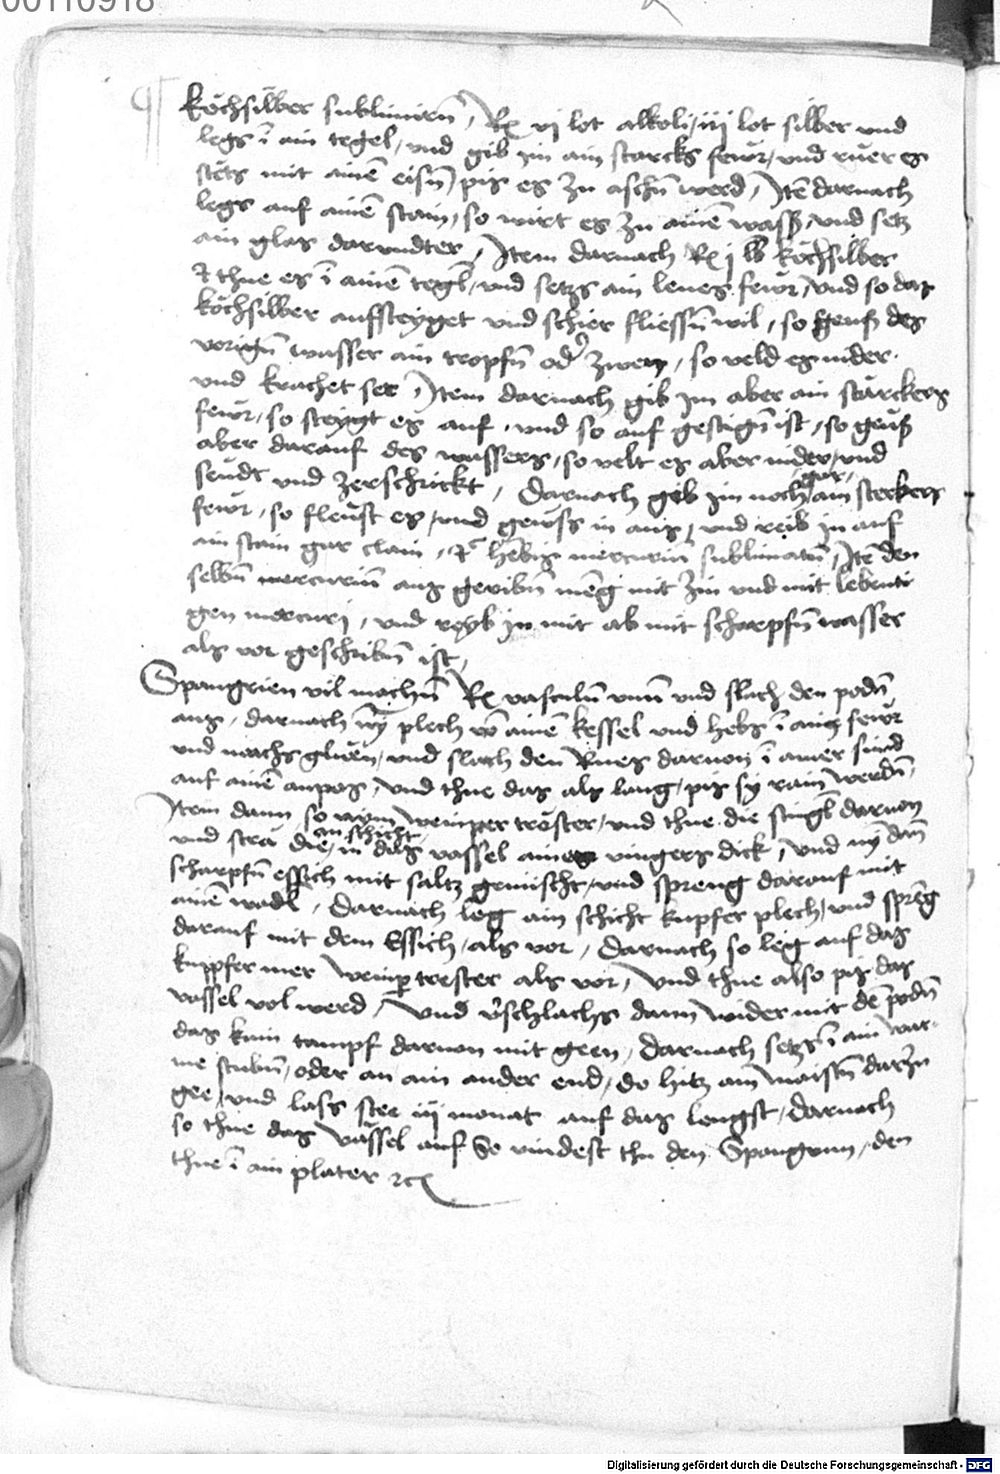 00110918
köchsilber sublimirñ, Rx vj lot alkoli, iij lot silber vnd
legs ī ain tegel, vnd gib im ain starcks fewr, vnd rüer es
stets mit ainē eisñ, pis es zu aschñ werd, Itē darnach
legs auf ainē stain, so wirt es zu ainē wass, vnd setz
ain glas darundter, Item darnach Rx j lb köchsilber
thue es ī ainē tegl, vnd setzs ain leues fewr, vnd so das
köchsilber aufsteyget vnd schier fliessñ wil, so geuss des
vorigñ wasser ain tropfñ od zwen, so veld es nider
vnd krachet ser, Item darnach gib im aber ain starckers
fewr, so steygt es auf, vnd so auf gestigñ ist, so geuß
aber darauf des wassers, so velt es aber nider, vnd
seudt vnd zerschrickt, Darnach gib im noch gar ain sterkers
fewr, so fleust es, vnd gewss in aus, vnd reib in auf
ain stain gar clain, mercuriū sublimatū, Itē den
selbñ mercuriū aus geribñ mēg mit zin vnd mit lebenti
gen mercurj, vnd reyb in mit ab mit scharpfñ wasser
als vor geschribñ ist,
Spangrien vil machñ Rx vasculū vinū vnd slach den podñ
aus, darnach nȳ plech vō ainē kessel vnd hebs ī ain fewr
vnd machs gluen, vnd slach den Rues darvon ī ainer
auf ainē anpos, vnd thue das als lang, pis sy rain werdñ,
Item dann so nym weinper trester, vnd thue die stingl darvon
vnd strä die an schicht in das vassel aines vingers dick, vnd nȳ dañ
scharpfñ essich mit saltz gemischt, vnd spreng darauf mit
ainē wadl, Darnach leg ain schicht kupfer plech, vnd sprēg
darauf mit dem Essich, als vor, Darnach so leg auf das
kupfer mer weinper trester als vor, vnd thue also pis das
vassel vol werd, vnd vschlachs dann wider mit dē podñ
das kain tampf darvon mit geen, Darnach setzs ī ain war-
me stubñ, oder an ain ander end, do hitz am maistñ darzu
gee, vnd lass stee iij monat auf das lengst, Darnach
so thue das vässel auf So vindest thu den Spangrun, den
thue ī ain plater
Digitalisierung gefördert durch die Deutsche Forschungsgemeinschaft - DFG